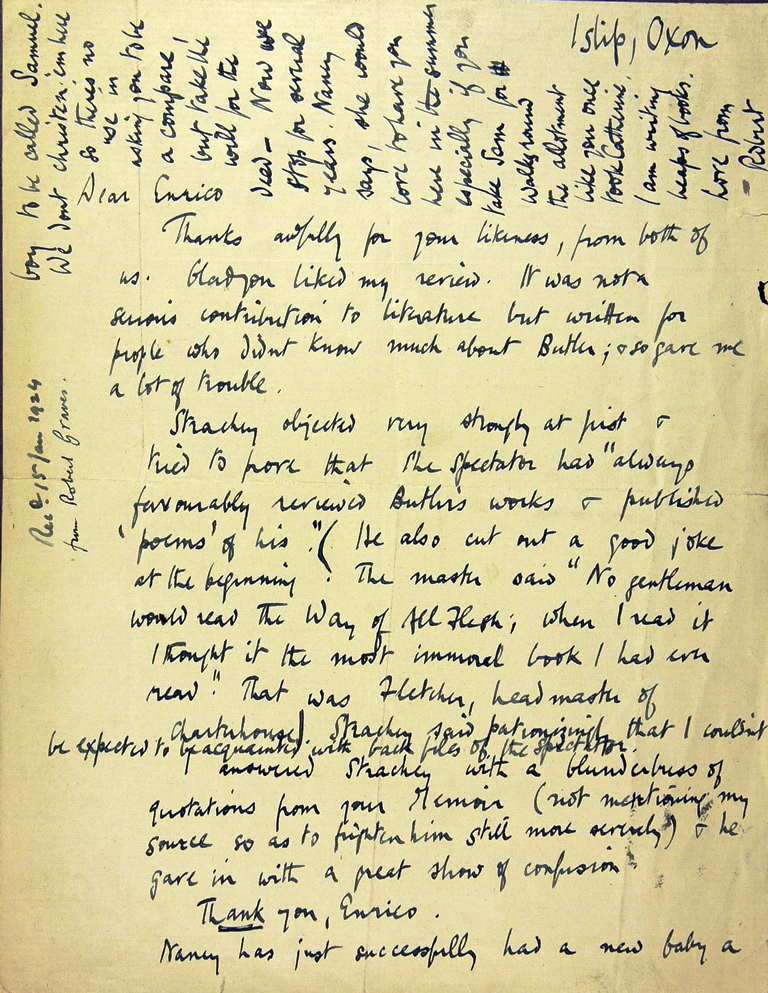 Islip, Oxon
Dear Enrico
Thanks awfully for your likeness, from both of
us. Glad you liked my review. It was not a
serious contribution to literature but written for
people who didnt know much about Butler; & so gave me
a lot of trouble.
Strachey objected very strongly at first &
tried to prove that the Spectator had "always
favourably reviewed Butler's works & published
'poems' of his". (He also cut out a good joke
at the beginning: The master said "No gentleman
would read the Way of All Flesh; when I read it
I thought it the most immoral book I had ever
read". That was Fletcher, headmaster of
Charterhouse). Strachey said patronizingly that I couldn't
be expected to be acquainted with back files of the Spectator.
I answered Strachey with a blunderbuss of
quotations from your Memoir (not mentioning my
source so as to frighten him still more severely) & he
gave in with a great show of confusion.
Thank you, Enrico.
Nancy has just successfully had a new baby a
boy to be called Samuel.
We dont christen 'em here
so there's no
use in
asking you to be
a compare,
but take the
will for the
deed – Now we
stop for several
years. Nancy
says, she would
love to have you
here in the summer
especially if you
take Sam for
walks round
the allotment
like you once
took Catherine.
I am writing
heaps of books.
Love from
– Robert
Recd. 15 Jan 1924
from Robert Graves.